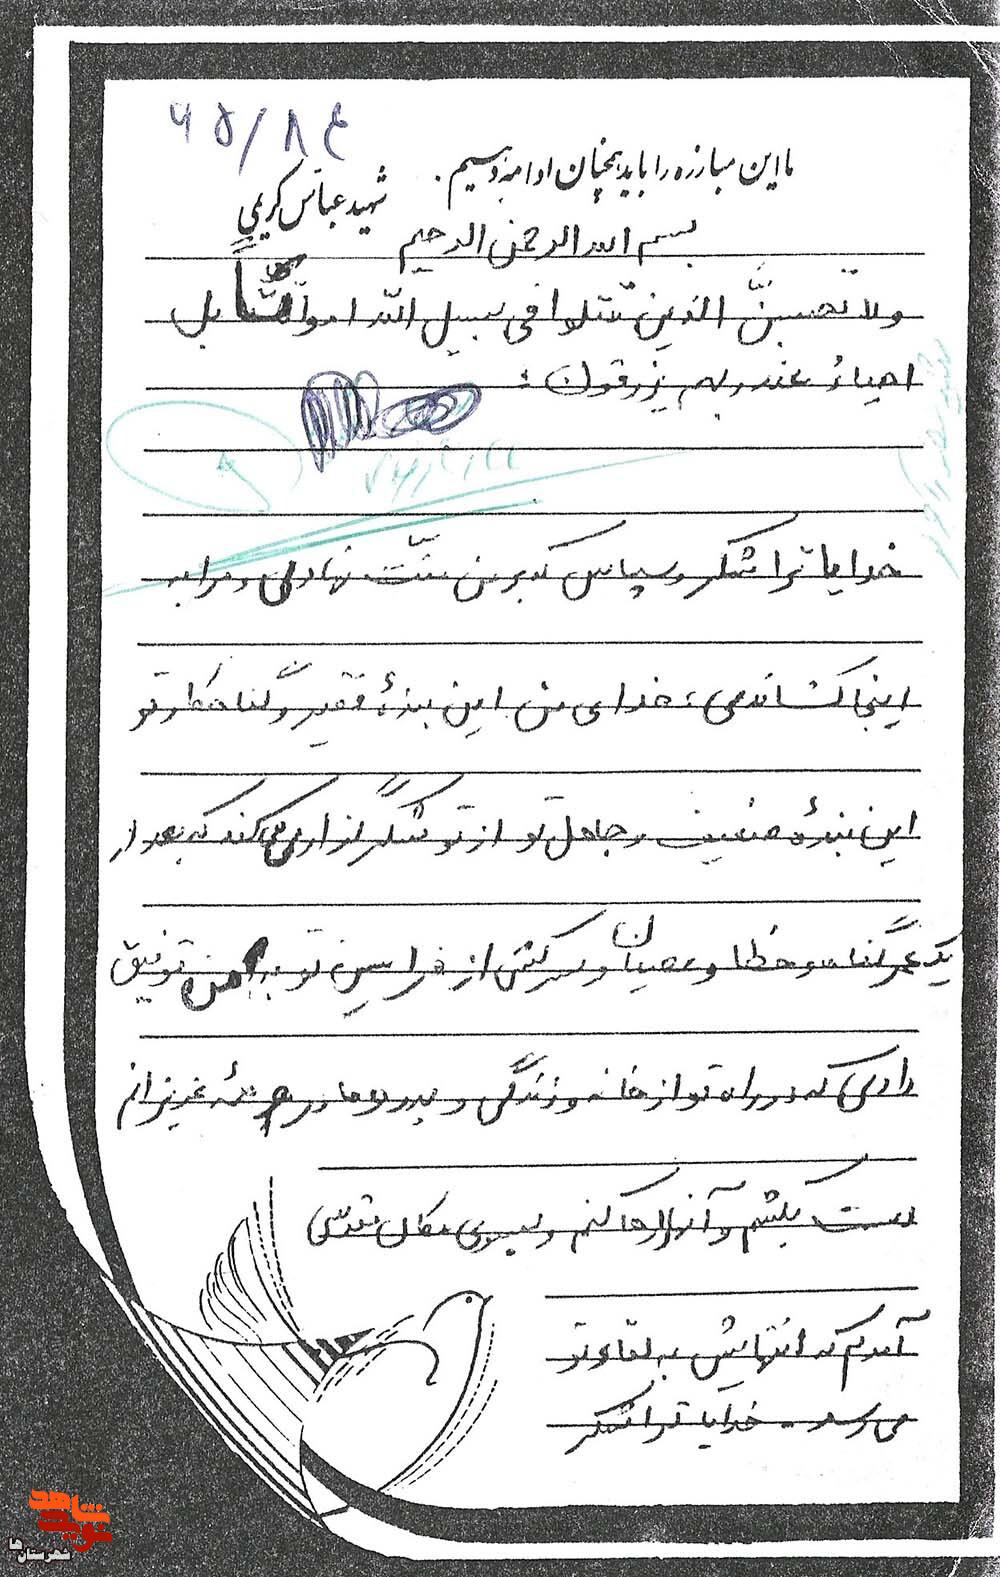 ۶۵/۸۴
ما این مبارزه را باید همچنان ادامه دهیم.
شهید عباس کریمی
بسم الله الرحمن الرحیم
ولا تحسبنَّ الذین قتلوا فی سبیل الله امواتاً بل
احیاءُ عند ربهم یرزقون:
خدایا ترا شکر و سپاس که بر من منّت نهادی و مرا به
اینجا کشاندی، خدای من این بندۀ فقیر و گناهکار تو
این بندۀ ضعیف و جاهل تو از تو شکرگزاری می‌کند که بعد از
یک عمر گناه و خطا و عصیان و سرکشی از فرامین تو به من توفیق
دادی که در راه تو از خانه و زندگی و پدر و مادر و همۀ عزیزانم
دست بکشم و آنرا رها کنم و بسوی مکان مقدسی
آمدم که انتهایش به لقاء تو
می رسد. خدایا ترا شکر
نوید شاهد
شهرستان ها